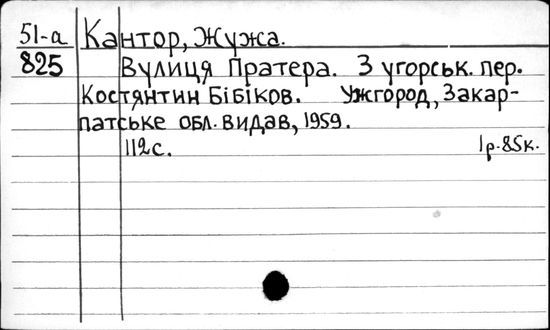 51-а Кантор, Жужа.
825 Вулиця Пратера. З угорськ. пер.
Костянтин Бібіков. Ужгород, Закар-
патське обл. видав, 1959.
112с. 1р.85к.